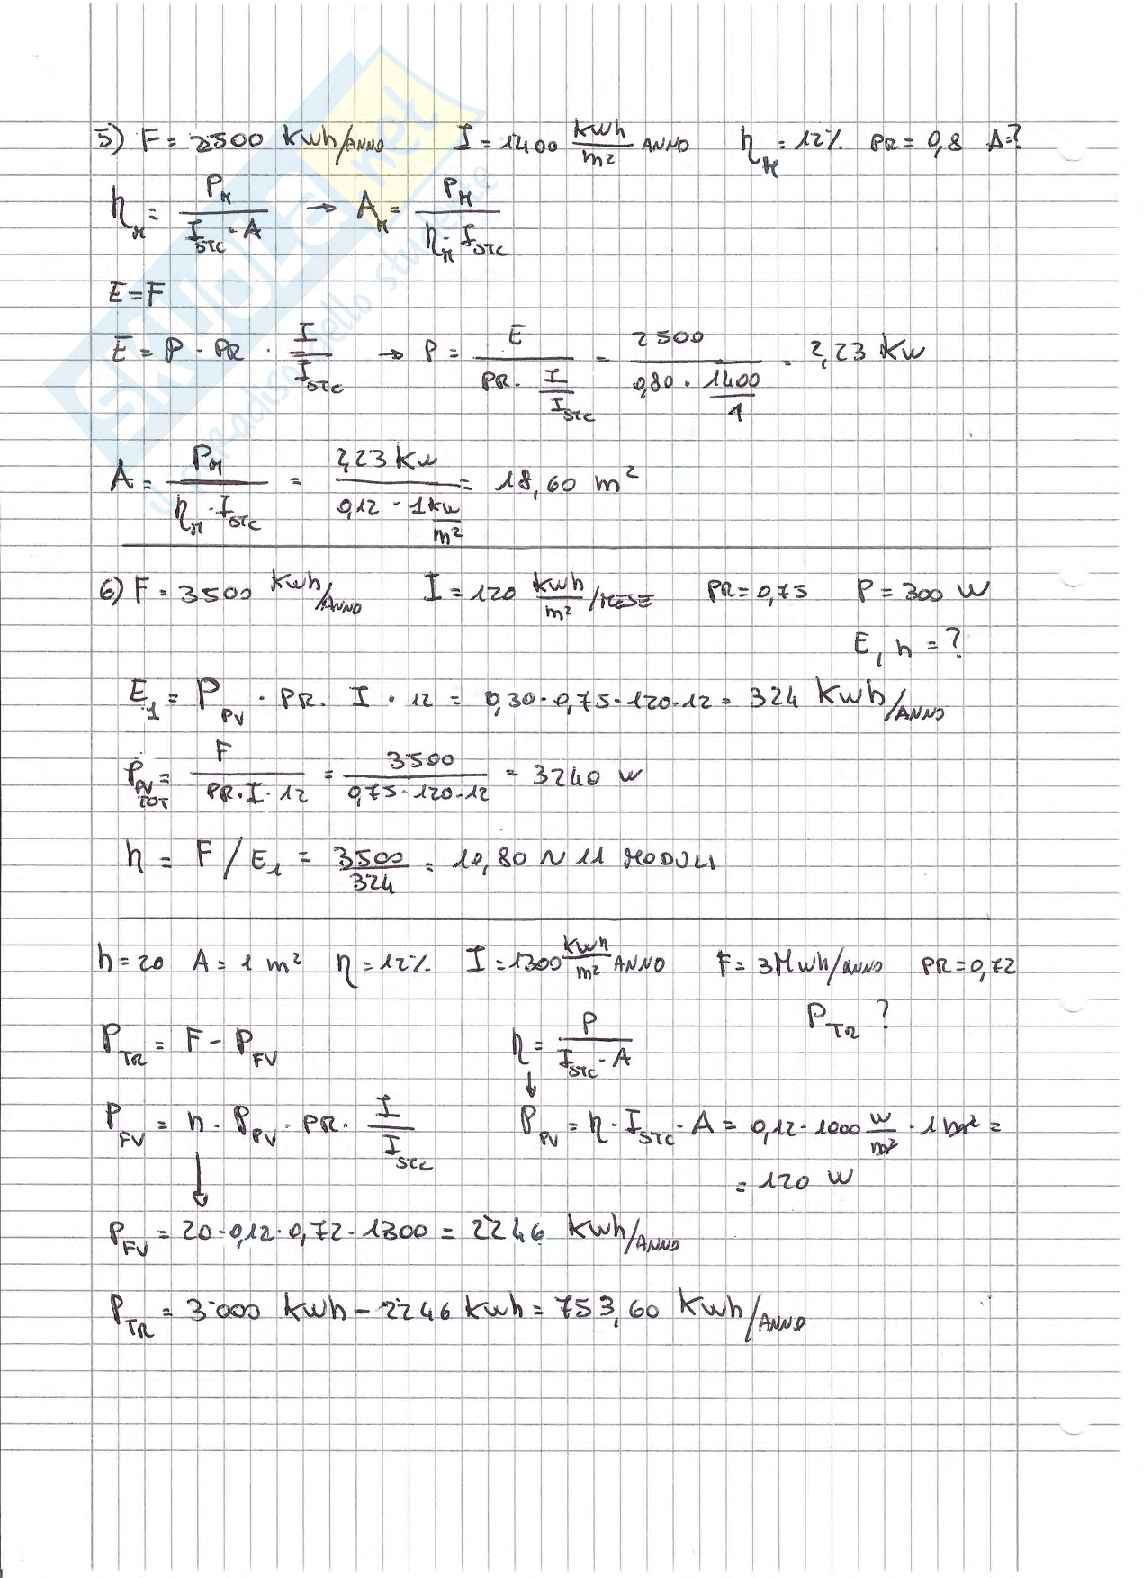 5) F = 2500 kWh/ANNO   I = 1400 kWh/m² ANNO   η_M = 12%   PR = 0,8   A=?
η_M = P_M / (I_STC · A) → A_M = P_M / (η_M · I_STC)
E = F
E = P · PR · I / I_STC → P = E / (PR · I / I_STC) = 2500 / (0,80 · 1400/1) = 2,23 KW
A = P_M / (η_M · I_STC) = 2,23 KW / (0,12 · 1 KW/m²) = 18,60 m²
6) F = 3500 KWh/ANNO   I = 120 KWh/m² /MESE   PR = 0,75   P = 300 W
E, n = ?
E_1 = P_PV · PR · I · 12 = 0,30 · 0,75 · 120 · 12 = 324 KWh/ANNO
P_PV TOT = F / (PR · I · 12) = 3500 / (0,75 · 120 · 12) = 3240 W
n = F / E_1 = 3500 / 324 = 10,80 ~ 11 MODULI
n = 20   A = 1 m²   η = 12%   I = 1300 KWh/m² ANNO   F = 3MWh/ANNO   PR = 0,72
P_TR ?
P_TR = F - P_FV   η = P / (I_STC · A)
P_FV = n · P_PV · PR · I / I_STC   P_PV = η · I_STC · A = 0,12 · 1000 W/m² · 1 m² =
= 120 W
P_FV = 20 · 0,12 · 0,72 · 1300 = 2246 KWh/ANNO
P_TR = 3000 KWh - 2246 KWh = 753,60 KWh/ANNO